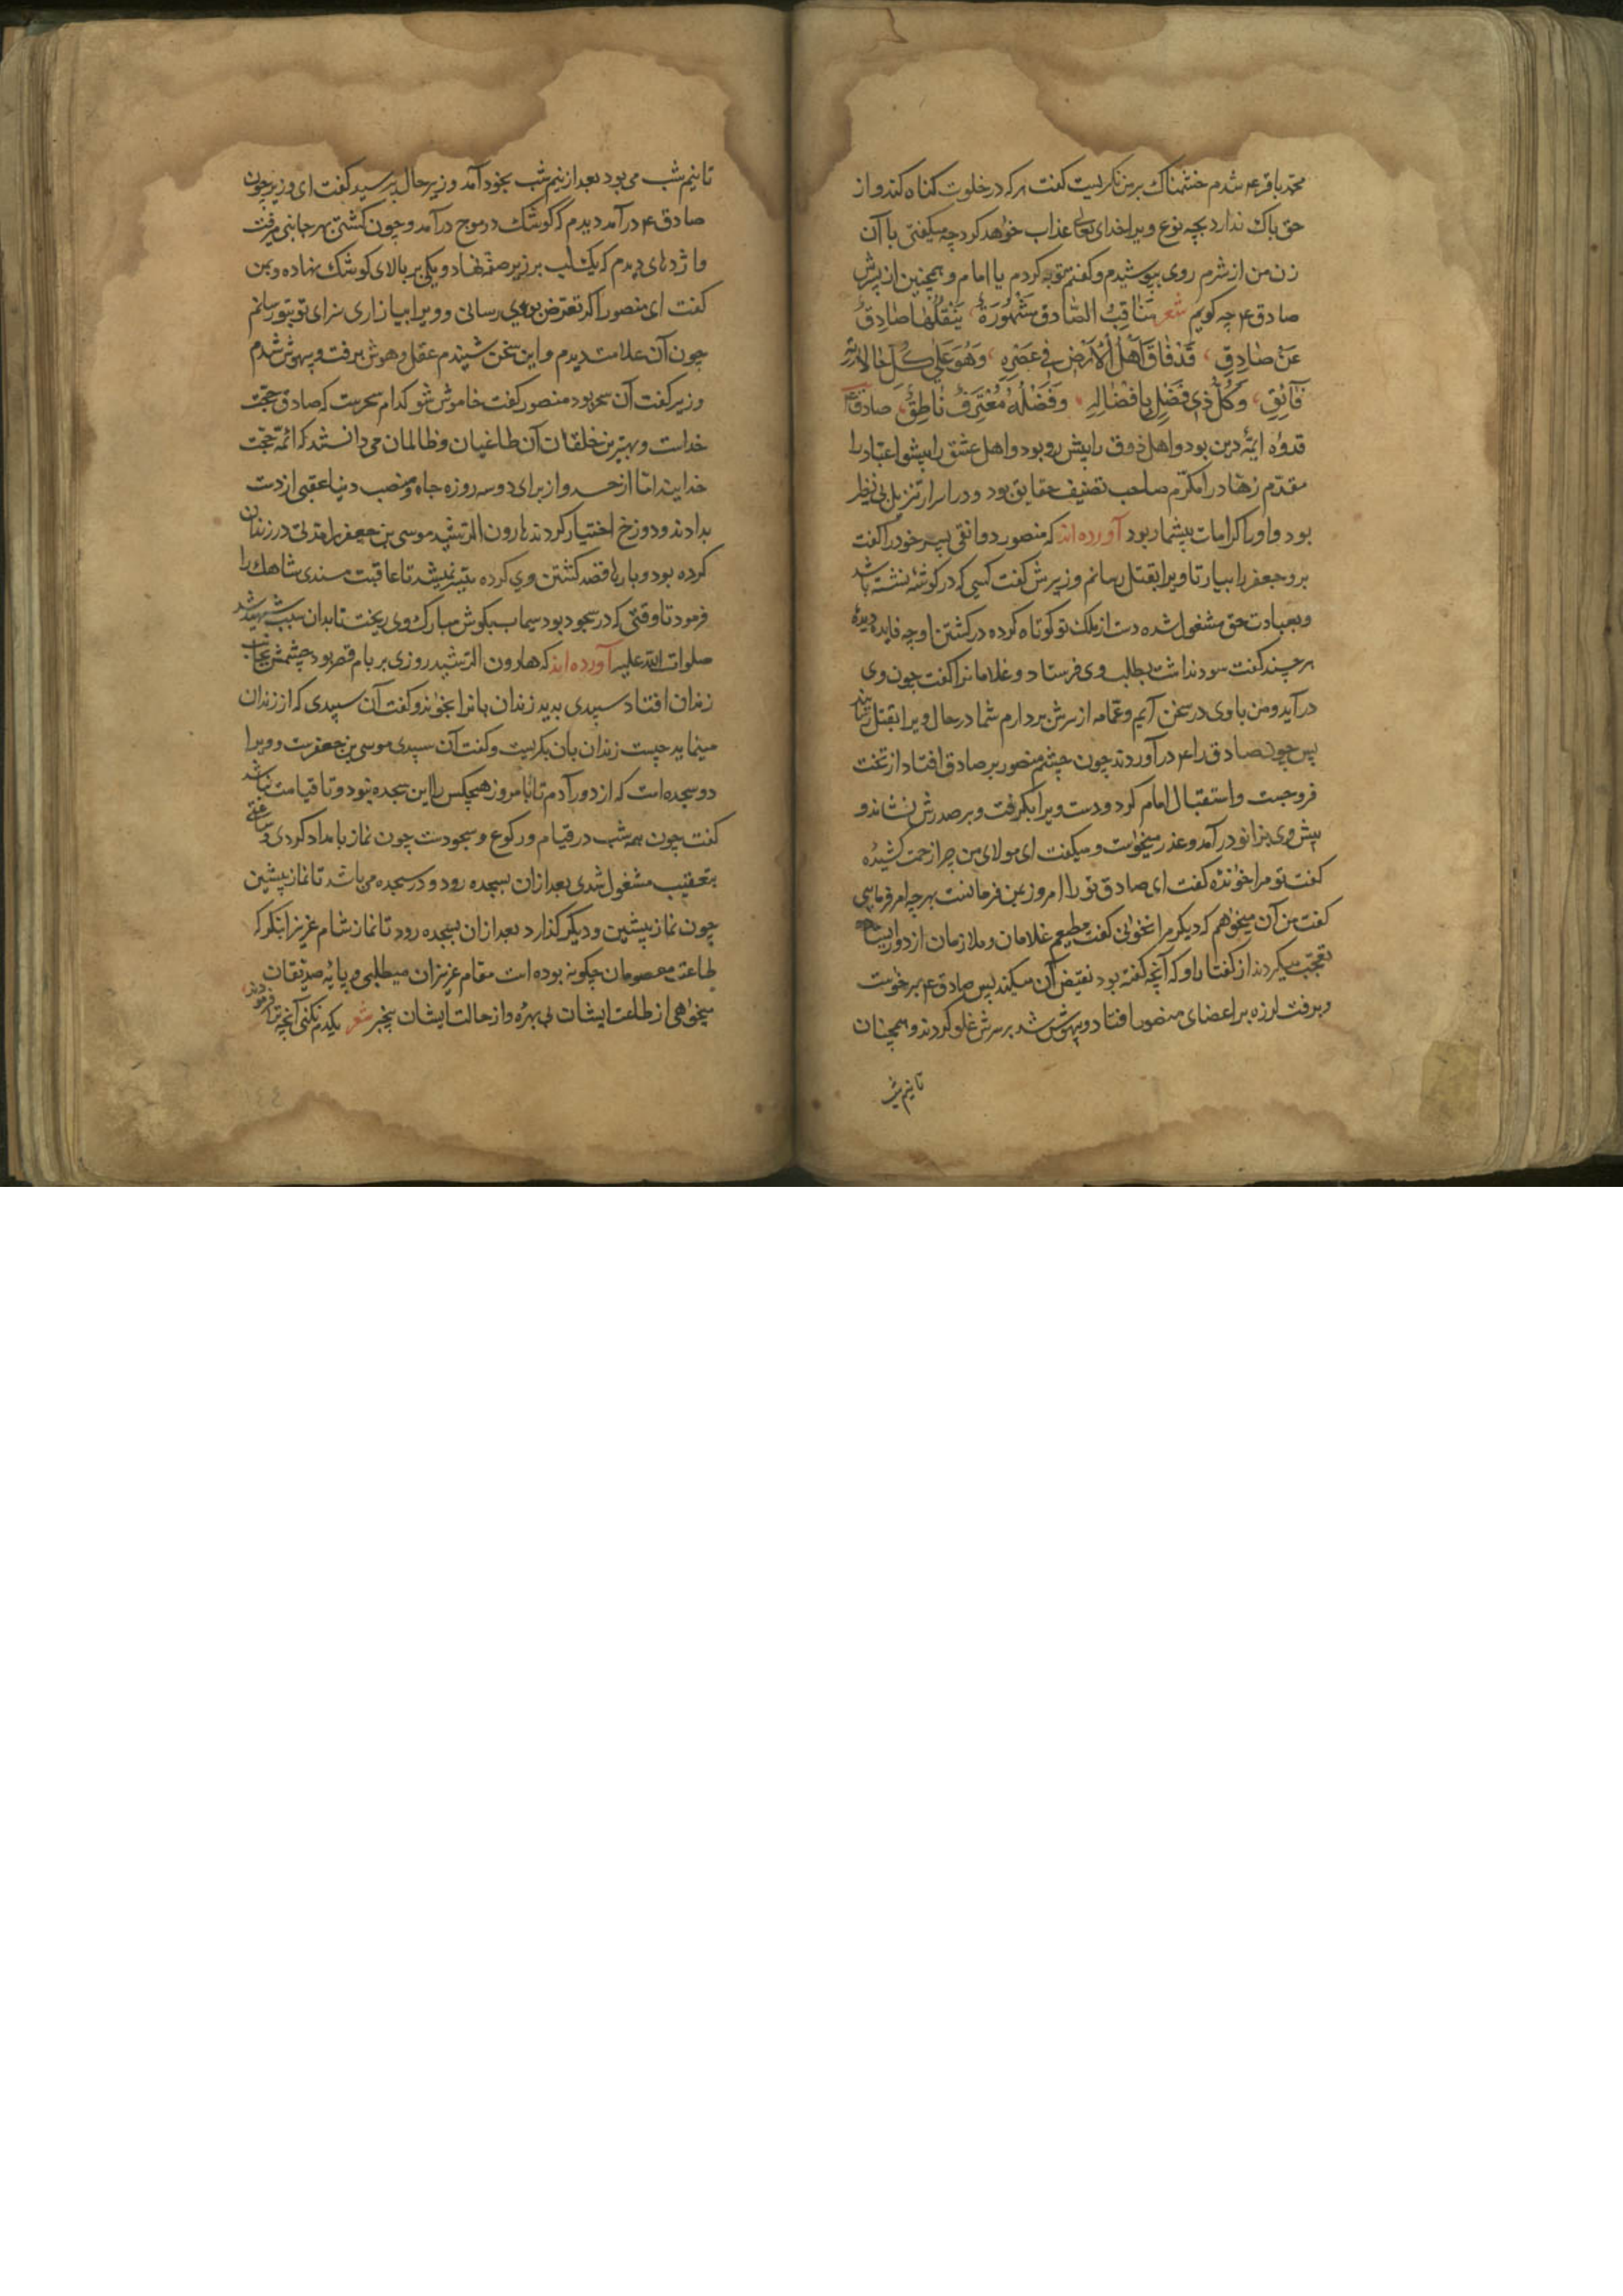 محمد باقر ع شدم خشمناک بر من نگریست گفت هر که در خلوت گناه کند و از
حق باک ندارد بچه نوع ویرا خدای تعالی عذاب خواهد کرد چه میکفتی با آن
زن من از شرم روی بپوشیدم و کفتم توبه کردم یا امام و همچنین از پسرش
صادق ع چه کویم شعر مَنَاقِبُ الصَّادِق مَشْهُورَةٌ يَنْقُلُهَا صَادِقٌ
عَنْ صَادِقِ قَدْ فَاقَ اَهْلَ الْاَرْضِ فِي عَصْرِهِ وَهُوَ عَلَى كُلِّ حَالَاتِهِ
فَآئِقِ وَكُلُّ ذِي فَضْلٍ بِاِفْضَالِهِ وَفَضْلُهُ مُعْتَرِفٌ نَاطِقٌ صادق ع
قدوهٔ ایمهٔ دین بود و اهل ذوق را پیش رو بود و اهل عشق را پیشوا عبّاد را
مقدّم زهّاد را مکرّم صاحب تصنیف حقایق بود و در اسرار تنزیل بی نظیر
بود و او را کرامات بیشمار بود آورده اند که منصور دوانقی پسر خود را گفت
برو جعفر را بیار تا ویرا بقتل رسانم وزیرش گفت کسی که در گوشه نشسته باشد
و بعبادت حق مشغول شده دست از ملک تو کوتاه کرده در کشتن او چه فایده دیدهٔ
هر چند گفت سود نداشت بطلب وی فرستاد و غلامانرا گفت چون وی
در آید و من با وی در سخن آیم و عمّامه از سرش بردارم شما در حال ویرا بقتل رسانید
پس چون صادق را ع در آوردند چون چشم منصور بر صادق افتاد از تخت
فرو جست و استقبال امام کرد و دست ویرا بگرفت و بر صدرش نشاند و
پیش وی بزانو در آمد و عذر میخواست و میکفت ای مولای من چرا زحمت کشیدهٔ
کفت تو مرا خواندهٔ کفت ای صادق تو را امروز بمن فرمانست بهر چه امر فرمایی
کفت من آن میخواهم که دیکر مرا نخوانی کفت مطیعم غلامان و ملازمان از دور ایستاده
تعجّب میکردند از کفتار او که آنچه کفته بود نقیض آن میکند پس صادق ع بر خواست
و برفت لرزه بر اعضای منصور افتاد و بیهوش شد بر سرش غلو کردند و همچنان
تا نیم شب
تا نیم شب می بود بعد از نیم شب بخود آمد وزیر حال پرسید کفت ای وزیر چون
صادق ع در آمد دیدم که گوشک در موج در آمد و چون کشتی بهر جانبی میرفت
و اژدهای دیدم که یک لب بر زیر صفه نهاد و یکی بر بالای کوشک نهاده و بمن
کفت ای منصور اگر تعرّض بوی رسانی و ویرا بیازاری سزای تو بتو رسانم
چون آن علامت دیدم و این سخن شنیدم عقل و هوش برفت و بیهوش شدم
وزیر کفت آن سحر بود منصور کفت خاموش شو کدام سحرست که صادق حجّت
خداست و بهترین خلقان آن طاغیان و ظالمان می دانستند که ائمّه حجّت
خدایند امّا از حسد و از برای دو سه روزه جاه و منصب دنیا عقبی از دست
بدادند و دوزخ اختیار کردند هارون الرّشید موسی بن جعفر را مدّتی در زندان
کرده بود و بارها قصد کشتن وی کرده میسّر نمیشد تا عاقبت سندی شاهک را
فرمود تا وقتی که در سجود بود سیماب بگوش مبارک وی ریخت تا بدان سبب شهید شد
صلوات الله علیه آورده اند که هارون الرّشید روزی بر بام قصر بود چشمش بجانب
زندان افتاد سپیدی بدید زندان بانرا بخواند و کفت آن سپیدی که از زندان
مینماید چیست زندان بان بگریست و کفت آن سپیدی موسی بن جعفرست و ویرا
دو سجده است که از دور آدم تا بامروز هیچکس را این سجده نبود و تا قیامت نباشد
کفت چون همه شب در قیام و رکوع و سجودست چون نماز بامداد کردی و ساعتی
بتعقیب مشغول شدی بعد از ان بسجده رود و در سجده می باشد تا نماز پیشین
چون نماز پیشین و دیگر گذارد بعد از ان بسجده رود تا نماز شام عزیز ا بنگر که
طاعت معصومان چکونه بوده است مقام عزیزان میطلبی و پایهٔ صدّیقان
میخواهی از طلعت ایشان بی بهره و از حالت ایشان بیخبر شعر یکدم نکنی آنچه ترا فرمودند
۱٤٤